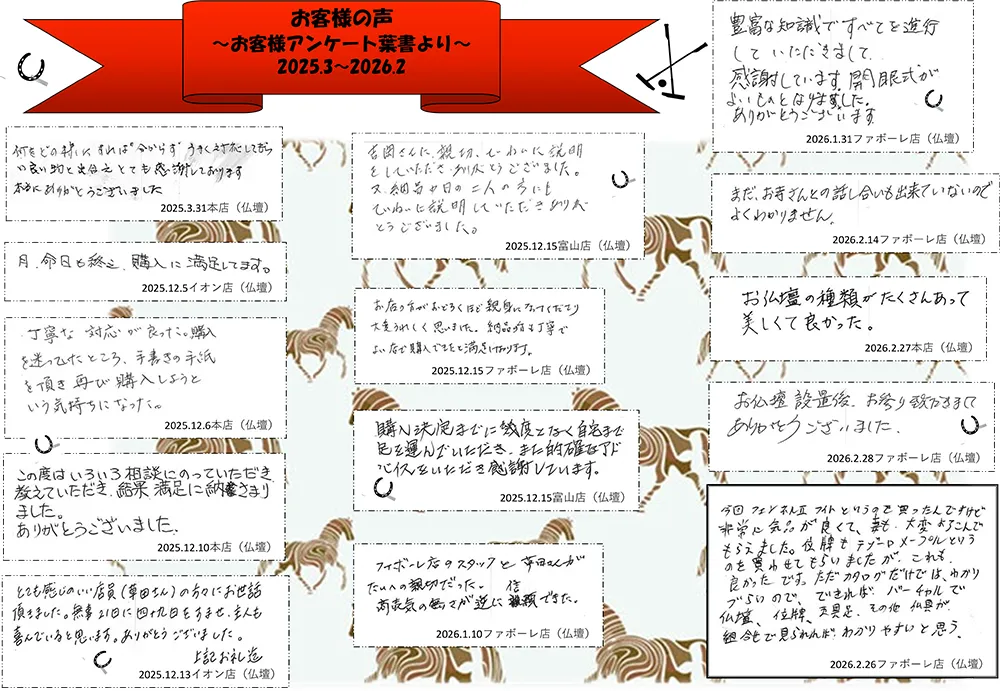 お客様の声
～お客様アンケート葉書より～
2025.3～2026.2
何をどの様に すれば 分からず うまく対応して下さ
い良い物と出会え とても感謝しております
本当にありがとうございました
2025.3.31本店（仏壇）
月 命日も終え、購入に満足してます。
2025.12.5イオン店（仏壇）
丁寧な 対応が良った。購入
を迷っていたところ、手書きの手紙
を頂き再び購入しようと
いう気持ちになった。
2025.12.6本店（仏壇）
この度はいろいろ相談にのっていただき
教えていただき、結果 満足に納まり
ました。
ありがとうございました。
2025.12.10本店（仏壇）
とても感じのいい店員（草田さん）の方々にお世話
頂きました。無事21日に四十九日をすませ、主人も
喜んでいると思います。ありがとうございました。
上記お礼迄
2025.12.13イオン店（仏壇）
吉岡さんに、親切、ていねいに説明
をしていただきありがとうございました。
又、納品の日の二人の方にも
ていねいに説明していただきありがとう
ございました。
2025.12.15富山店（仏壇）
お店の方がおどろくほど親身になってくださり
大変うれしく思いました。納品も丁寧で
よい店で購入できたと満足しております。
2025.12.15ファボーレ店（仏壇）
購入決定までに幾度となく自宅まで
足を運んでいただき、また的確なアド
バイスをいただき感謝しています。
2025.12.15富山店（仏壇）
ファボーレ店のスタッフと 草田さんが
たいへん親切だった。
商売気の無さが逆に 信頼できた。
2026.1.10ファボーレ店（仏壇）
豊富な知識ですべてを進行
していただきまして、
感謝しています。開眼式が
よいものとなりました。
ありがとうございます
2026.1.31ファボーレ店（仏壇）
まだ、お寺さんとの話し合いも出来ていないので
よくわかりません。
2026.2.14ファボーレ店（仏壇）
お仏壇の種類がたくさんあって
美しくて良かった。
2026.2.27本店（仏壇）
お仏壇設置後、お参り頂きまして
ありがとうございました。
2026.2.28ファボーレ店（仏壇）
今回 フェンネルⅡ ライトというのを買ったんですけど
非常に気品が良くて、妻も、大変よろこんで
もらえました。位牌も テジーロ メープルという
のを買わせてもらいましたが、これも
良かったです。ただカタログだけでは、わかり
づらいので、できれば、バーチャルで
仏壇、位牌、具足、その他 仏具が、
組合せで見られれば わかりやすいと思う。
2026.2.26ファボーレ店（仏壇）